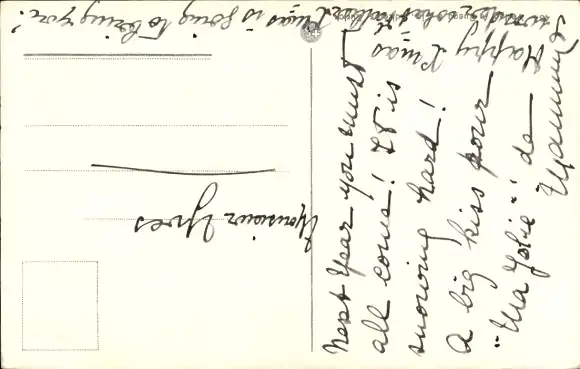 Monsieur Yves
Happy Xmas
wonder what Father Xmas is going to bring you?
Next Year you must
all come! It is
snowing hard!
A big kiss pour
"Ma Jolie" de
Mammy